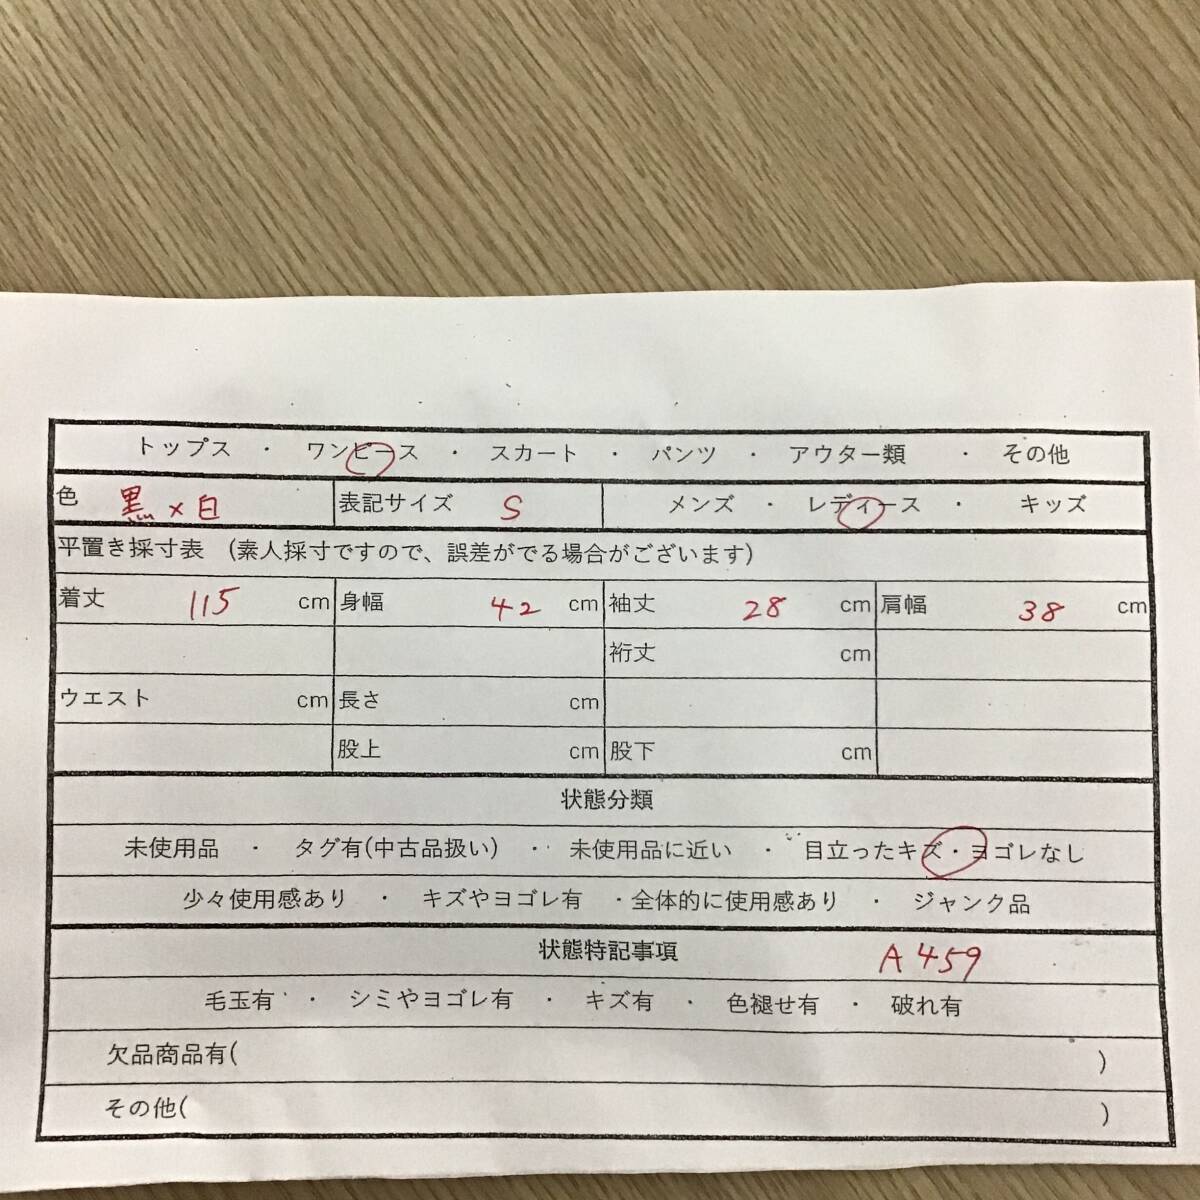 トップス ・ ワンピース ・ スカート ・ パンツ ・ アウター類 ・ その他
色 黒×白 表記サイズ S メンズ ・ レディース ・ キッズ
平置き採寸表 (素人採寸ですので、誤差がでる場合がございます)
着丈 115 cm 身幅 42 cm 袖丈 28 cm 肩幅 38 cm
裄丈 cm
ウエスト cm 長さ cm
股上 cm 股下 cm
状態分類
未使用品 ・ タグ有(中古品扱い) ・ 未使用品に近い ・ 目立ったキズ・ヨゴレなし
少々使用感あり ・ キズやヨゴレ有 ・全体的に使用感あり ・ ジャンク品
状態特記事項 A459
毛玉有 ・ シミやヨゴレ有 ・ キズ有 ・ 色褪せ有 ・ 破れ有
欠品商品有( )
その他( )